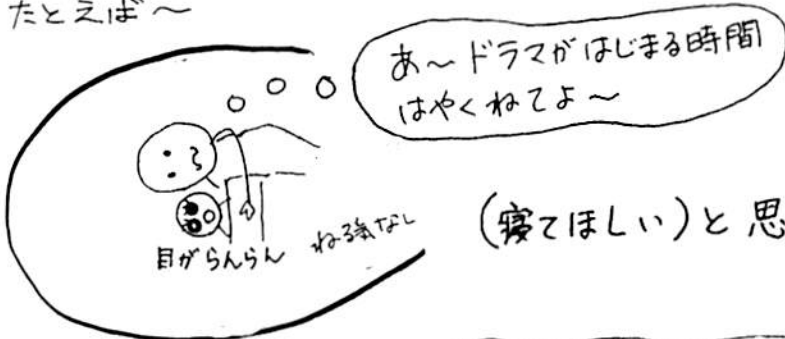 たとえば〜
あ〜ドラマがはじまる時間
はやくねてよ〜
目がらんらん ねる気なし
(寝てほしい)と思